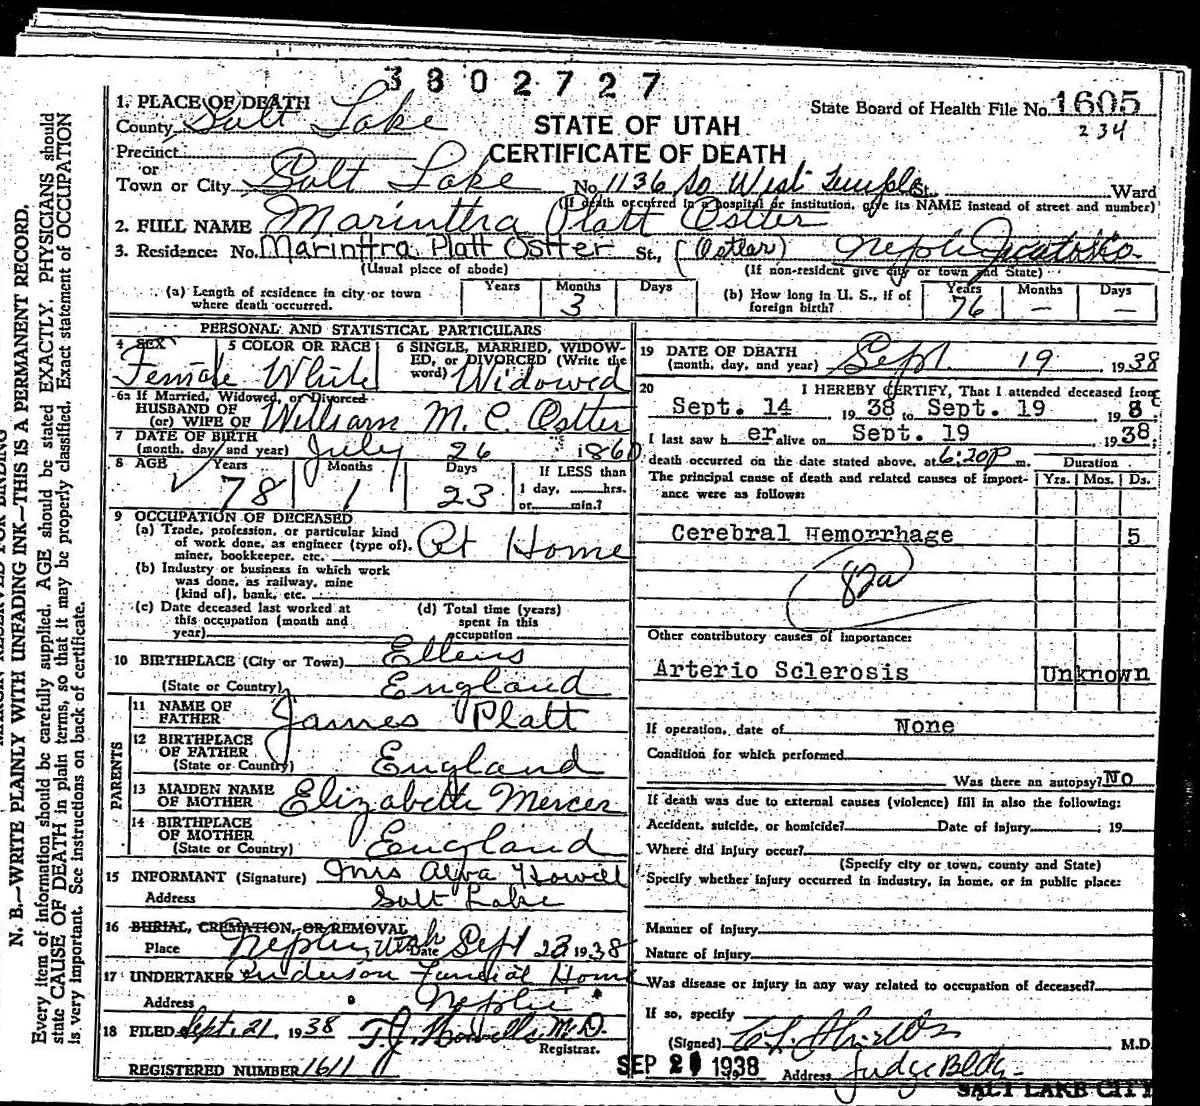 3802727
1. PLACE OF DEATH
County Salt Lake
State Board of Health File No. 1605
234
STATE OF UTAH
CERTIFICATE OF DEATH
Precinct
or
Town or City Salt Lake No. 1136 So West Temple St. Ward
(If death occurred in a hospital or institution, give its NAME instead of street and number)
2. FULL NAME Marinttra Platt Ostter
3. Residence: No. Marinttra Platt Ostter St., (Ostler) Nephi
(Usual place of abode) (If non-resident give city or town and State)
(a) Length of residence in city or town where death occurred. Years Months 3 Days
(b) How long in U. S., if of foreign birth? Years 76 Months — Days —
PERSONAL AND STATISTICAL PARTICULARS
4 SEX Female
5 COLOR OR RACE White
6 SINGLE, MARRIED, WIDOWED, or DIVORCED (Write the word) Widowed
6a If Married, Widowed, or Divorced
HUSBAND OF
(or) WIFE OF William M. C. Ostter
7 DATE OF BIRTH
(month, day and year) July 26 1860
8 AGE Years 78 Months 1 Days 23 If LESS than
1 day, hrs.
or min.?
9 OCCUPATION OF DECEASED
(a) Trade, profession, or particular kind
of work done, as engineer (type of),
miner, bookkeeper, etc. At Home
(b) Industry or business in which work
was done, as railway, mine
(kind of), bank, etc.
(c) Date deceased last worked at
this occupation (month and
year)
(d) Total time (years)
spent in this
occupation
10 BIRTHPLACE (City or Town) Ellens
(State or Country) England
PARENTS
11 NAME OF
FATHER James Platt
12 BIRTHPLACE
OF FATHER
(State or Country) England
13 MAIDEN NAME
OF MOTHER Elizabeth Mercer
14 BIRTHPLACE
OF MOTHER
(State or Country) England
15 INFORMANT (Signature) Mrs Alva Howell
Address Salt Lake
16 BURIAL, CREMATION, OR REMOVAL
Place Nephi, Utah Date Sept 23 1938
17 UNDERTAKER Anderson Funeral Home
Address Nephi
18 FILED Sept. 21 1938 T.J. Howells M.D.
Registrar.
REGISTERED NUMBER 1611
19 DATE OF DEATH
(month, day, and year) Sept. 19 1938
20 I HEREBY CERTIFY, That I attended deceased from
Sept. 14 1938 to Sept. 19 1938
I last saw her alive on Sept. 19 1938,
death occurred on the date stated above, at 6:20P m.
The principal cause of death and related causes of importance were as follows:
Duration
Yrs. Mos. Ds.
Cerebral Hemorrhage 5
82a
Other contributory causes of importance:
Arterio Sclerosis Unknown
If operation, date of None
Condition for which performed
Was there an autopsy? No
If death was due to external causes (violence) fill in also the following:
Accident, suicide, or homicide? Date of injury ; 19
Where did injury occur?
(Specify city or town, county and State)
Specify whether injury occurred in industry, in home, or in public place:
Manner of injury
Nature of injury
Was disease or injury in any way related to occupation of deceased?
If so, specify
(Signed) M.D.
SEP 21 1938 Address Judge Bldg.
SALT LAKE CITY
N. B.—WRITE PLAINLY WITH UNFADING INK—THIS IS A PERMANENT RECORD.
Every item of information should be carefully supplied. AGE should be stated EXACTLY. PHYSICIANS should
state CAUSE OF DEATH in plain terms, so that it may be properly classified. Exact statement of OCCUPATION
is very important. See instructions on back of certificate.